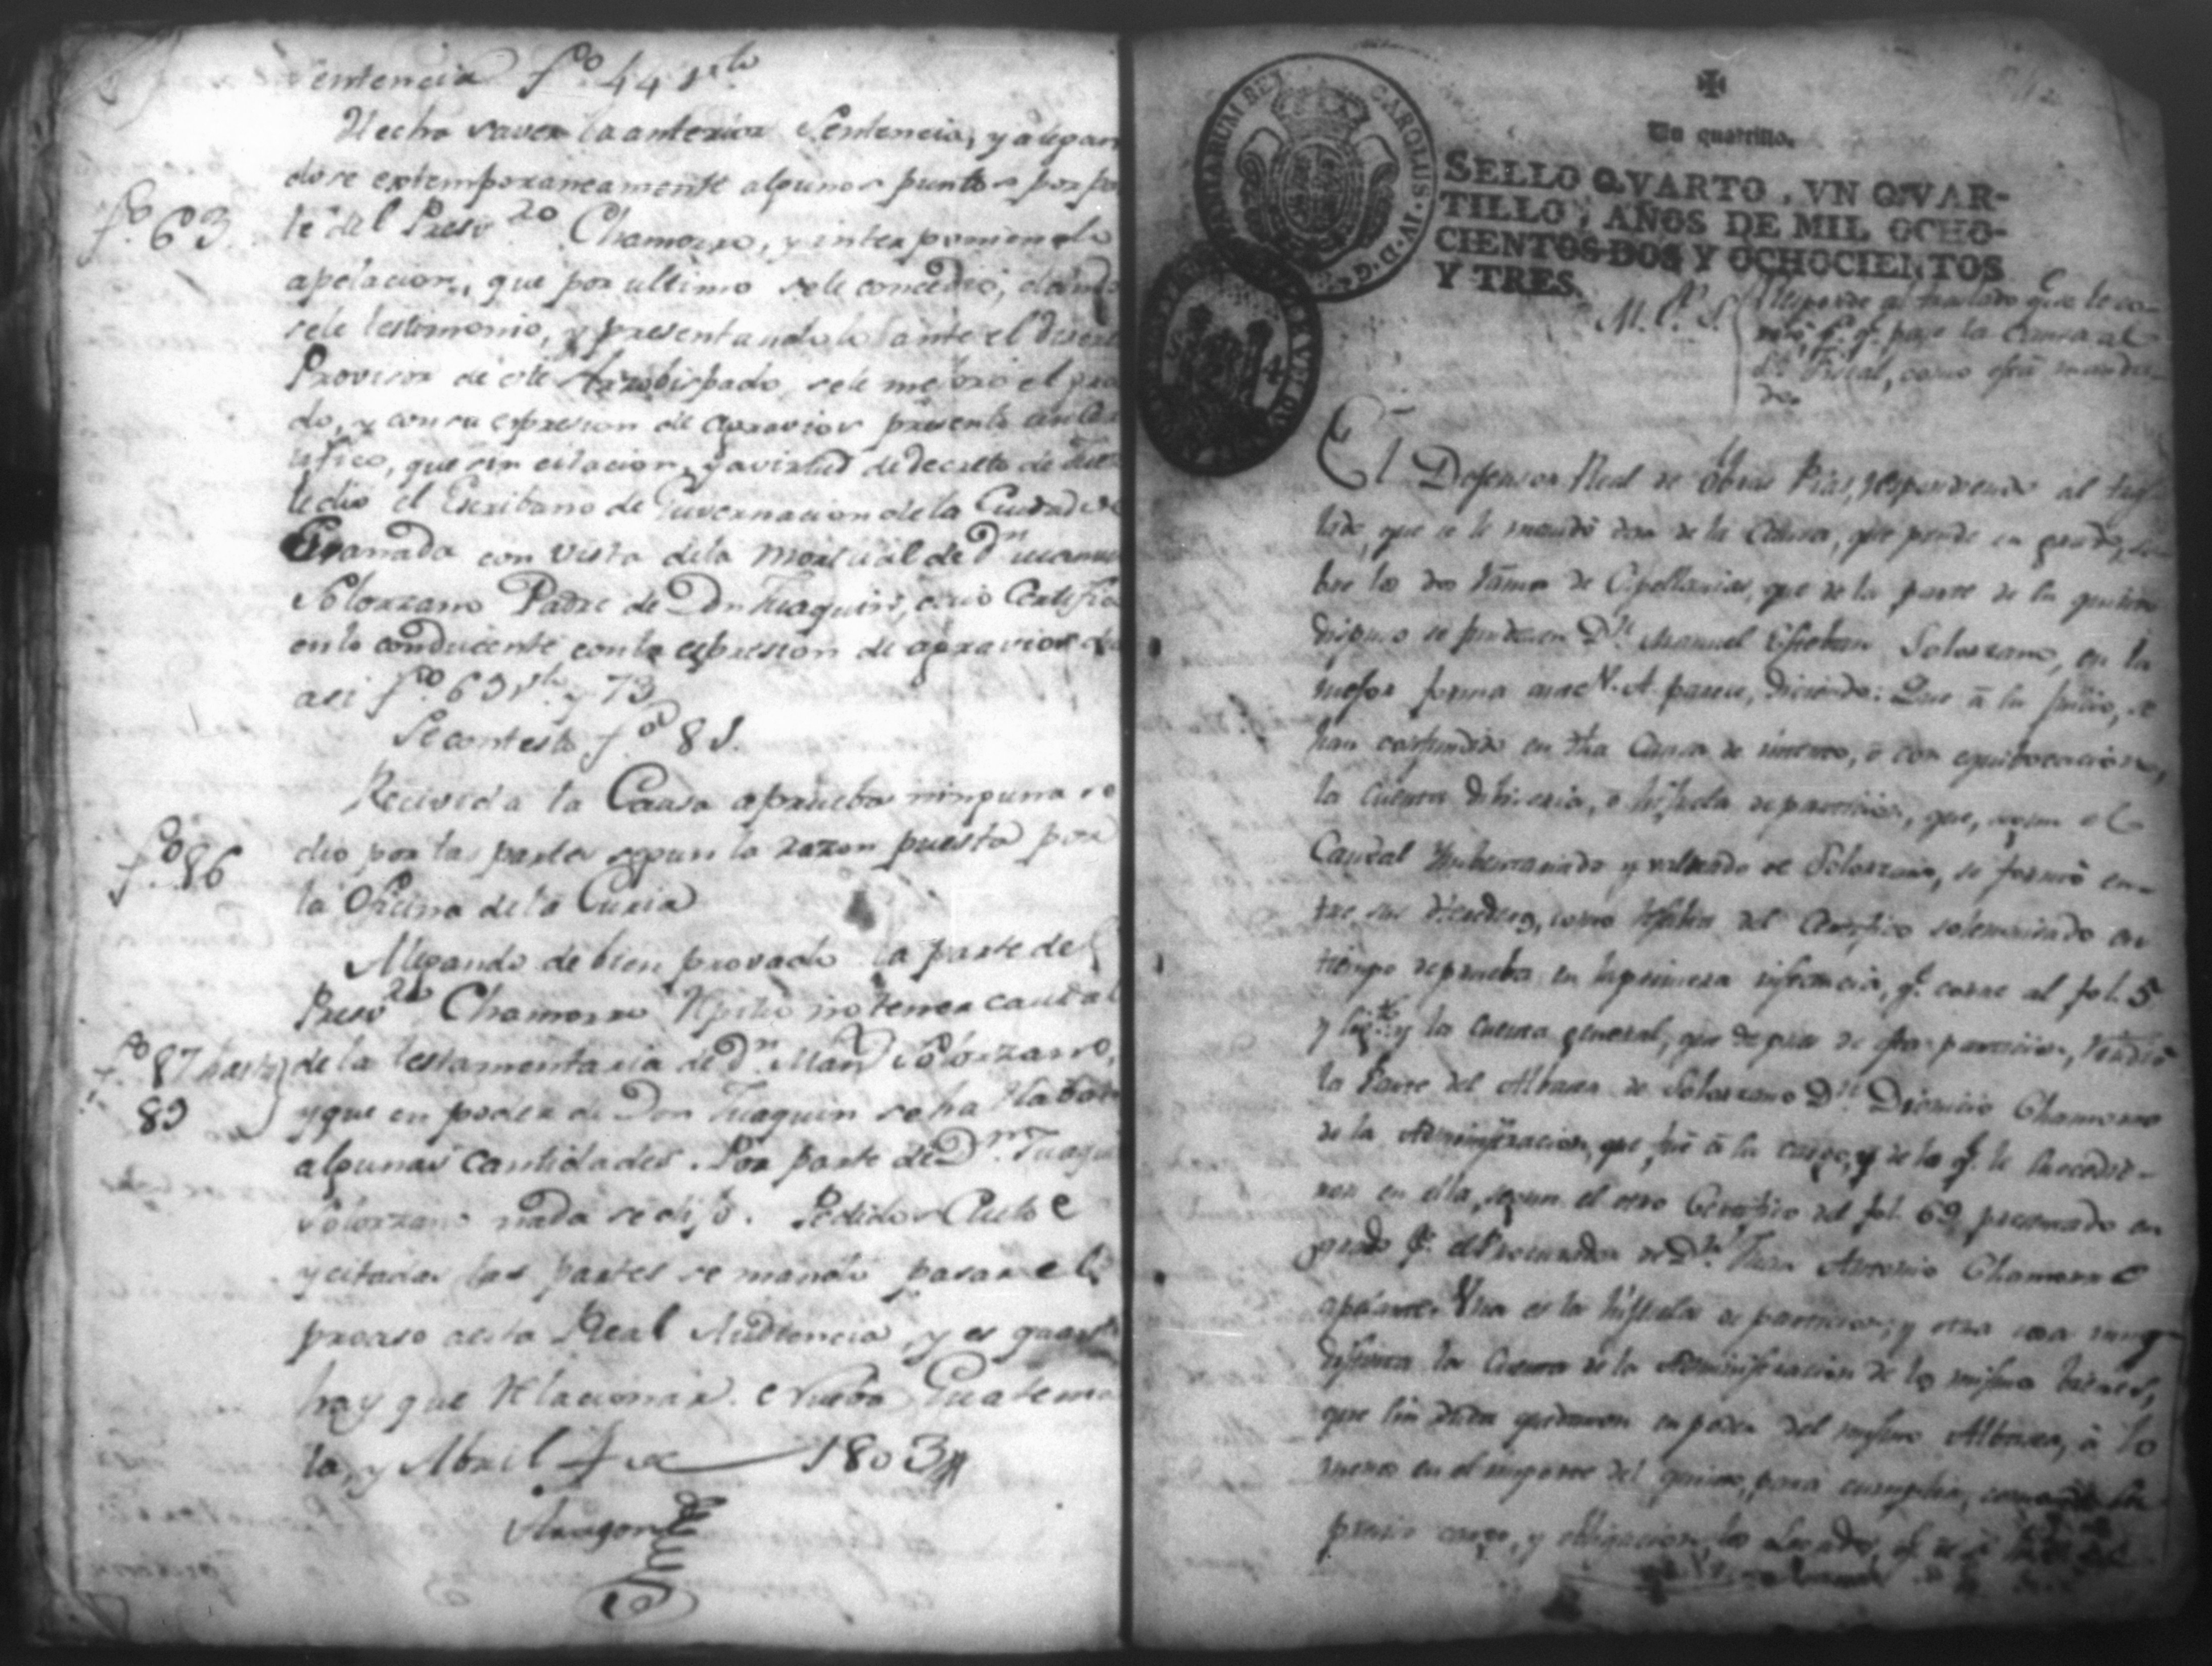 Sentencia f.º 44 v.ta
Hecho saver la anterior Sentencia, y alegan
dose extemporaneamente algunos puntos por pa
f.º 63. te del Presv.ro Chamorro, y interponiendo
apelacion, que por ultimo se le concedió, dando
sele testimonio, y presentandolo ante el
Provisor de este Arzobispado, se le mejoró el gra
do, y con su expresion de agravios presentó un Cer
tifico, que sin citacion, y a virtud de decreto de
le dio el Escribano de Guvernacion de la Ciudad de
Granada con vista dela mortual de D.n Manuel
Solorzano Padre de Don Juaquin, cuio Certifico
en lo conducente con la expresion de agravios
asi f.º 69 v.ta y 73
Se contesta f.º 81.
Recivida la Causa aprueba ninguna se
f.º 86 dio por las partes segun la razon puesta por
la Oficina de la Curia
Alegando de bien provado la parte del
Presv.ro Chamorro repitio no tener caudal
f.º 87 hasta 89 de la testamentaria de D.n Man.l Solorzano,
y que en poder de Don Juaquin se ha
algunas cantidades. Por parte de D.n Juaqui
Solorzano nada se dijo. Pedidos Autos
y citadas las partes se mandó pasar el
proceso a esta Real Audiencia, y es quanto
hay que relacionar. Nueva Guatema
la, y Abril 4 de 1803
Aragon
Un quartillo.
SELLO QVARTO, VN QVAR-
TILLO, AÑOS DE MIL OCHO-
CIENTOS DOS Y OCHOCIENTOS
Y TRES.
CAROLUS·IV·D·G·
M. P. S. Responde al traslado que se le co-
rrió p.a q.e pase la Causa al
S.or Fiscal, como esta manda-
do.
El Defensor Real de Obras Pias, respondiendo al tras
lado, que se le mandó dar de la Causa, que pende en grado, so-
bre los dos ramos de Capellanias, que de la parte de la quinta
dispuso se fundaran D.n Manuel Esteban Solorzano, en la
mejor forma ante V. A. parece, diciendo: Que á lu juicio, se
han confundido en dha Causa de intento, ó con equivocacion,
la Cuenta divisoria, ó hijuela de particion, que, segun el
Caudal Ymbentariado y valuado de Solorzano, se formó en-
tre sus Herederos, como resulta del Certifico solemnizado en
tiempo de prueba en la primera instancia, q.e corre al fol. 5
y sig.tes y la Cuenta general, que despues de esta particion,
la Parte del Albacea de Solorzano D.n Dionicio Chamorro
de la Administracion, que fue á lu cargo, y de los q.e le sucedie-
ron en ella, segun el otro Certifico del fol. 69 presentado en
grado p.r el Procurador de D.n Juan Antonio Chamorro
apelante. Una es la hijuela de particion, y otra cosa muy
distinta la Cuenta de la Administracion de los mismos bienes,
que sin duda quedaron en poder del mismo Albacea, á lo
menos en el importe del quinto, para cumplir,
preciso cargo, y obligacion, los Legados,